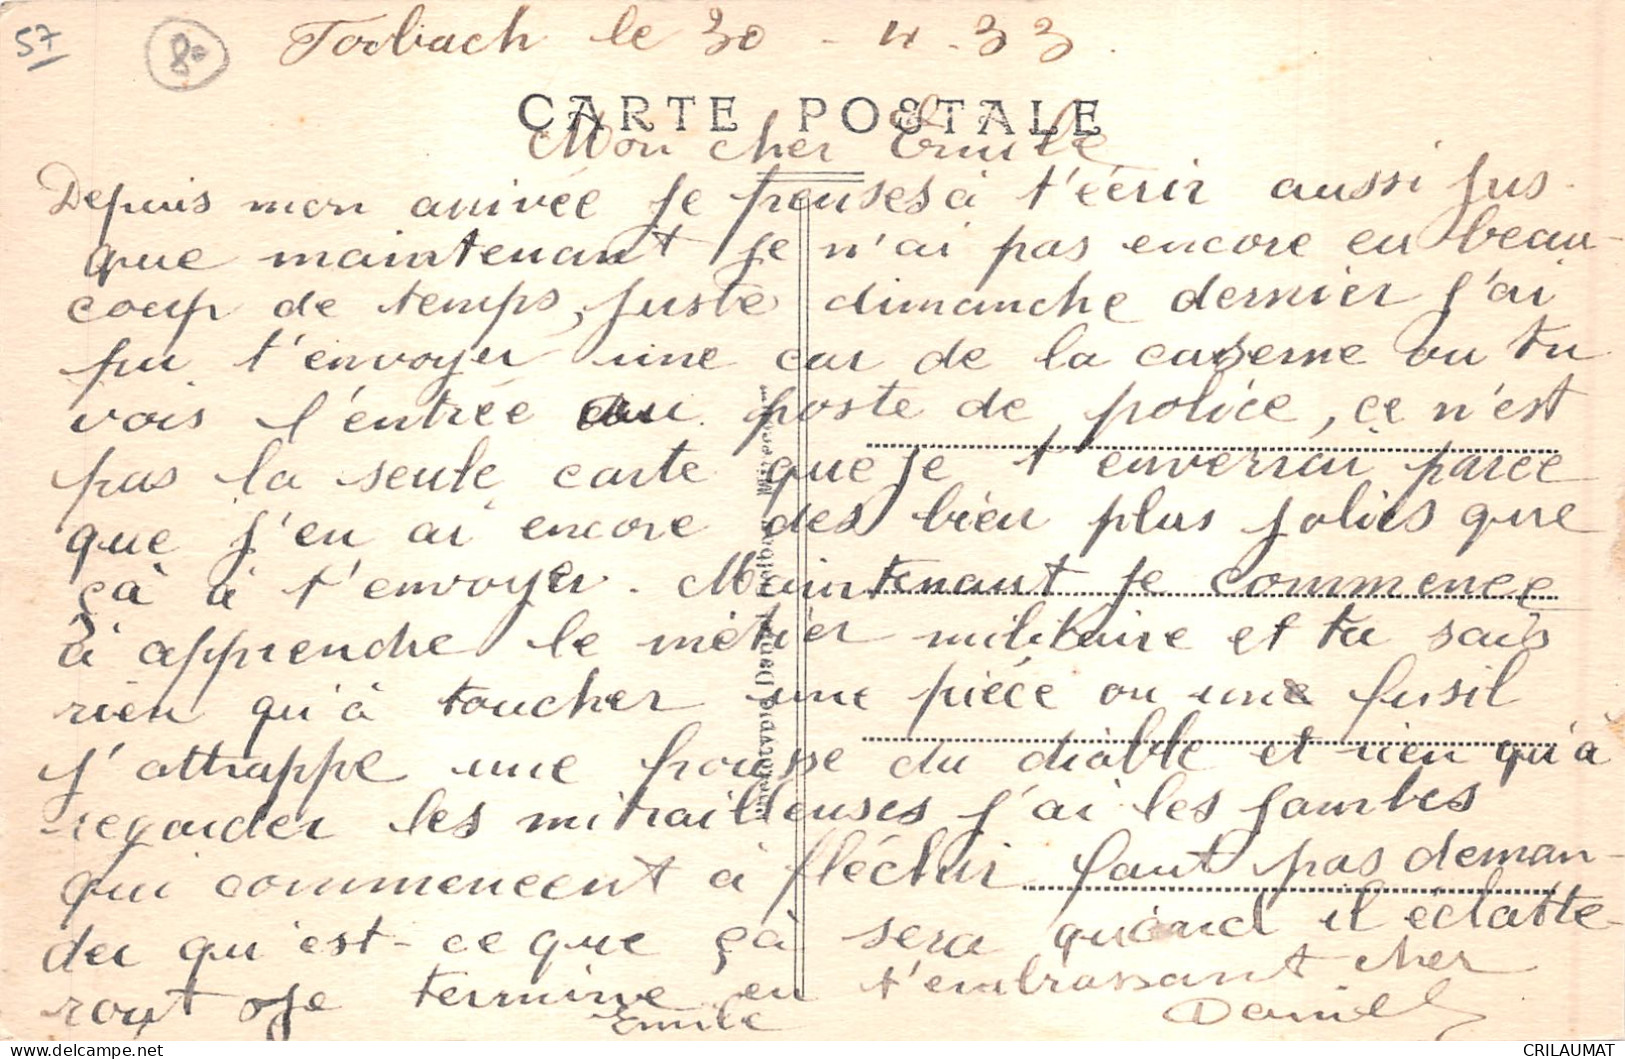 57
80
Forbach le 30 - 4 - 33.
CARTE POSTALE
Mon cher Emile
Depuis mon arrivée je penses à t'éérir aussi jus-
que maintenant je n'ai pas encore eu beau-
coup de temps, juste dimanche dernier j'ai
pu t'envoyer une car de la caserne ou tu
vois l'entrée au poste de police, ce n'est
pas la seule carte que je t'enverrai parce
que j'en ai encore des bien plus jolies que
çà à t'envoyer. Maintenant je commence
à apprendre le métier militaire et tu sais
rien qu'à toucher une pièce ou une fusil
j'attrappe une frousse du diable et rien qu'à
regarder les mitrailleuses j'ai les jambes
qui commencent à fléchir faut pas deman-
der qu'est-ce que çà sera quand il éclatte-
ront je termine en t'embrassant cher
Emile
Daniel
CRILAUMAT